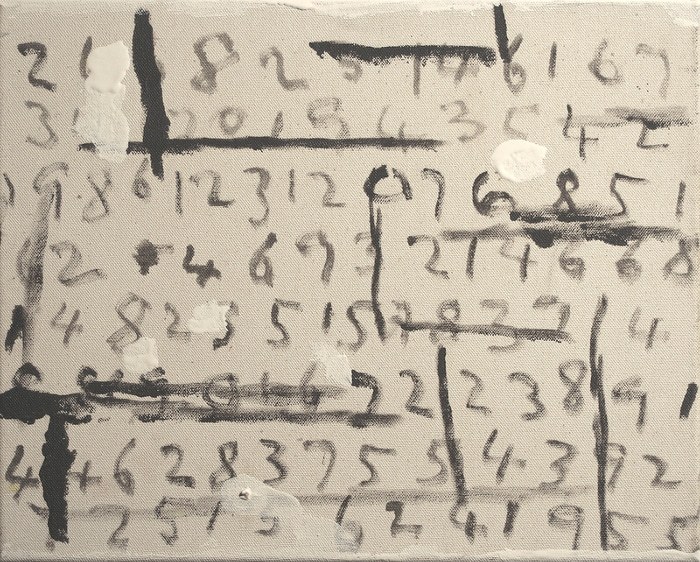 2 1 8 2 5 1 4 6 1 6 7
3 2 0 1 5 4 3 5 4 2
1 9 8 6 1 2 3 1 2 0 7 6 8 5 1
2 4 6 9 3 2 1 4 6 6 8
1 4 8 2 5 5 1 5 7 8 3 7 4
0 1 6 2 2 2 3 8 9 1
4 4 6 2 8 3 7 5 5 4 3 9 2
2 5 1 5 6 2 4 1 9 5 5